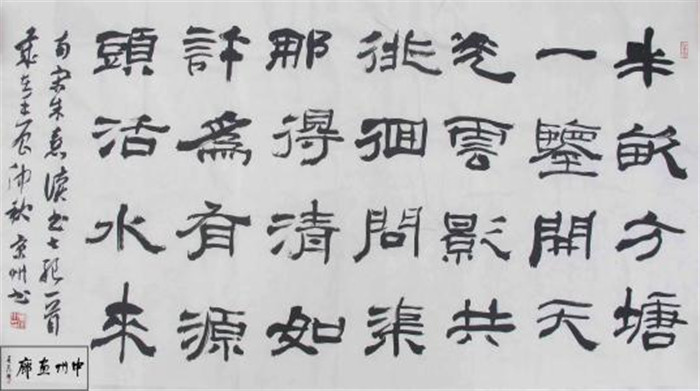 半畝方塘
一鑒開天
光雲影共
徘徊問渠
那得清如
許為有源
頭活水來
南宋朱熹讀書七絕一首
歲在壬辰仲秋京州書
中州畫廊